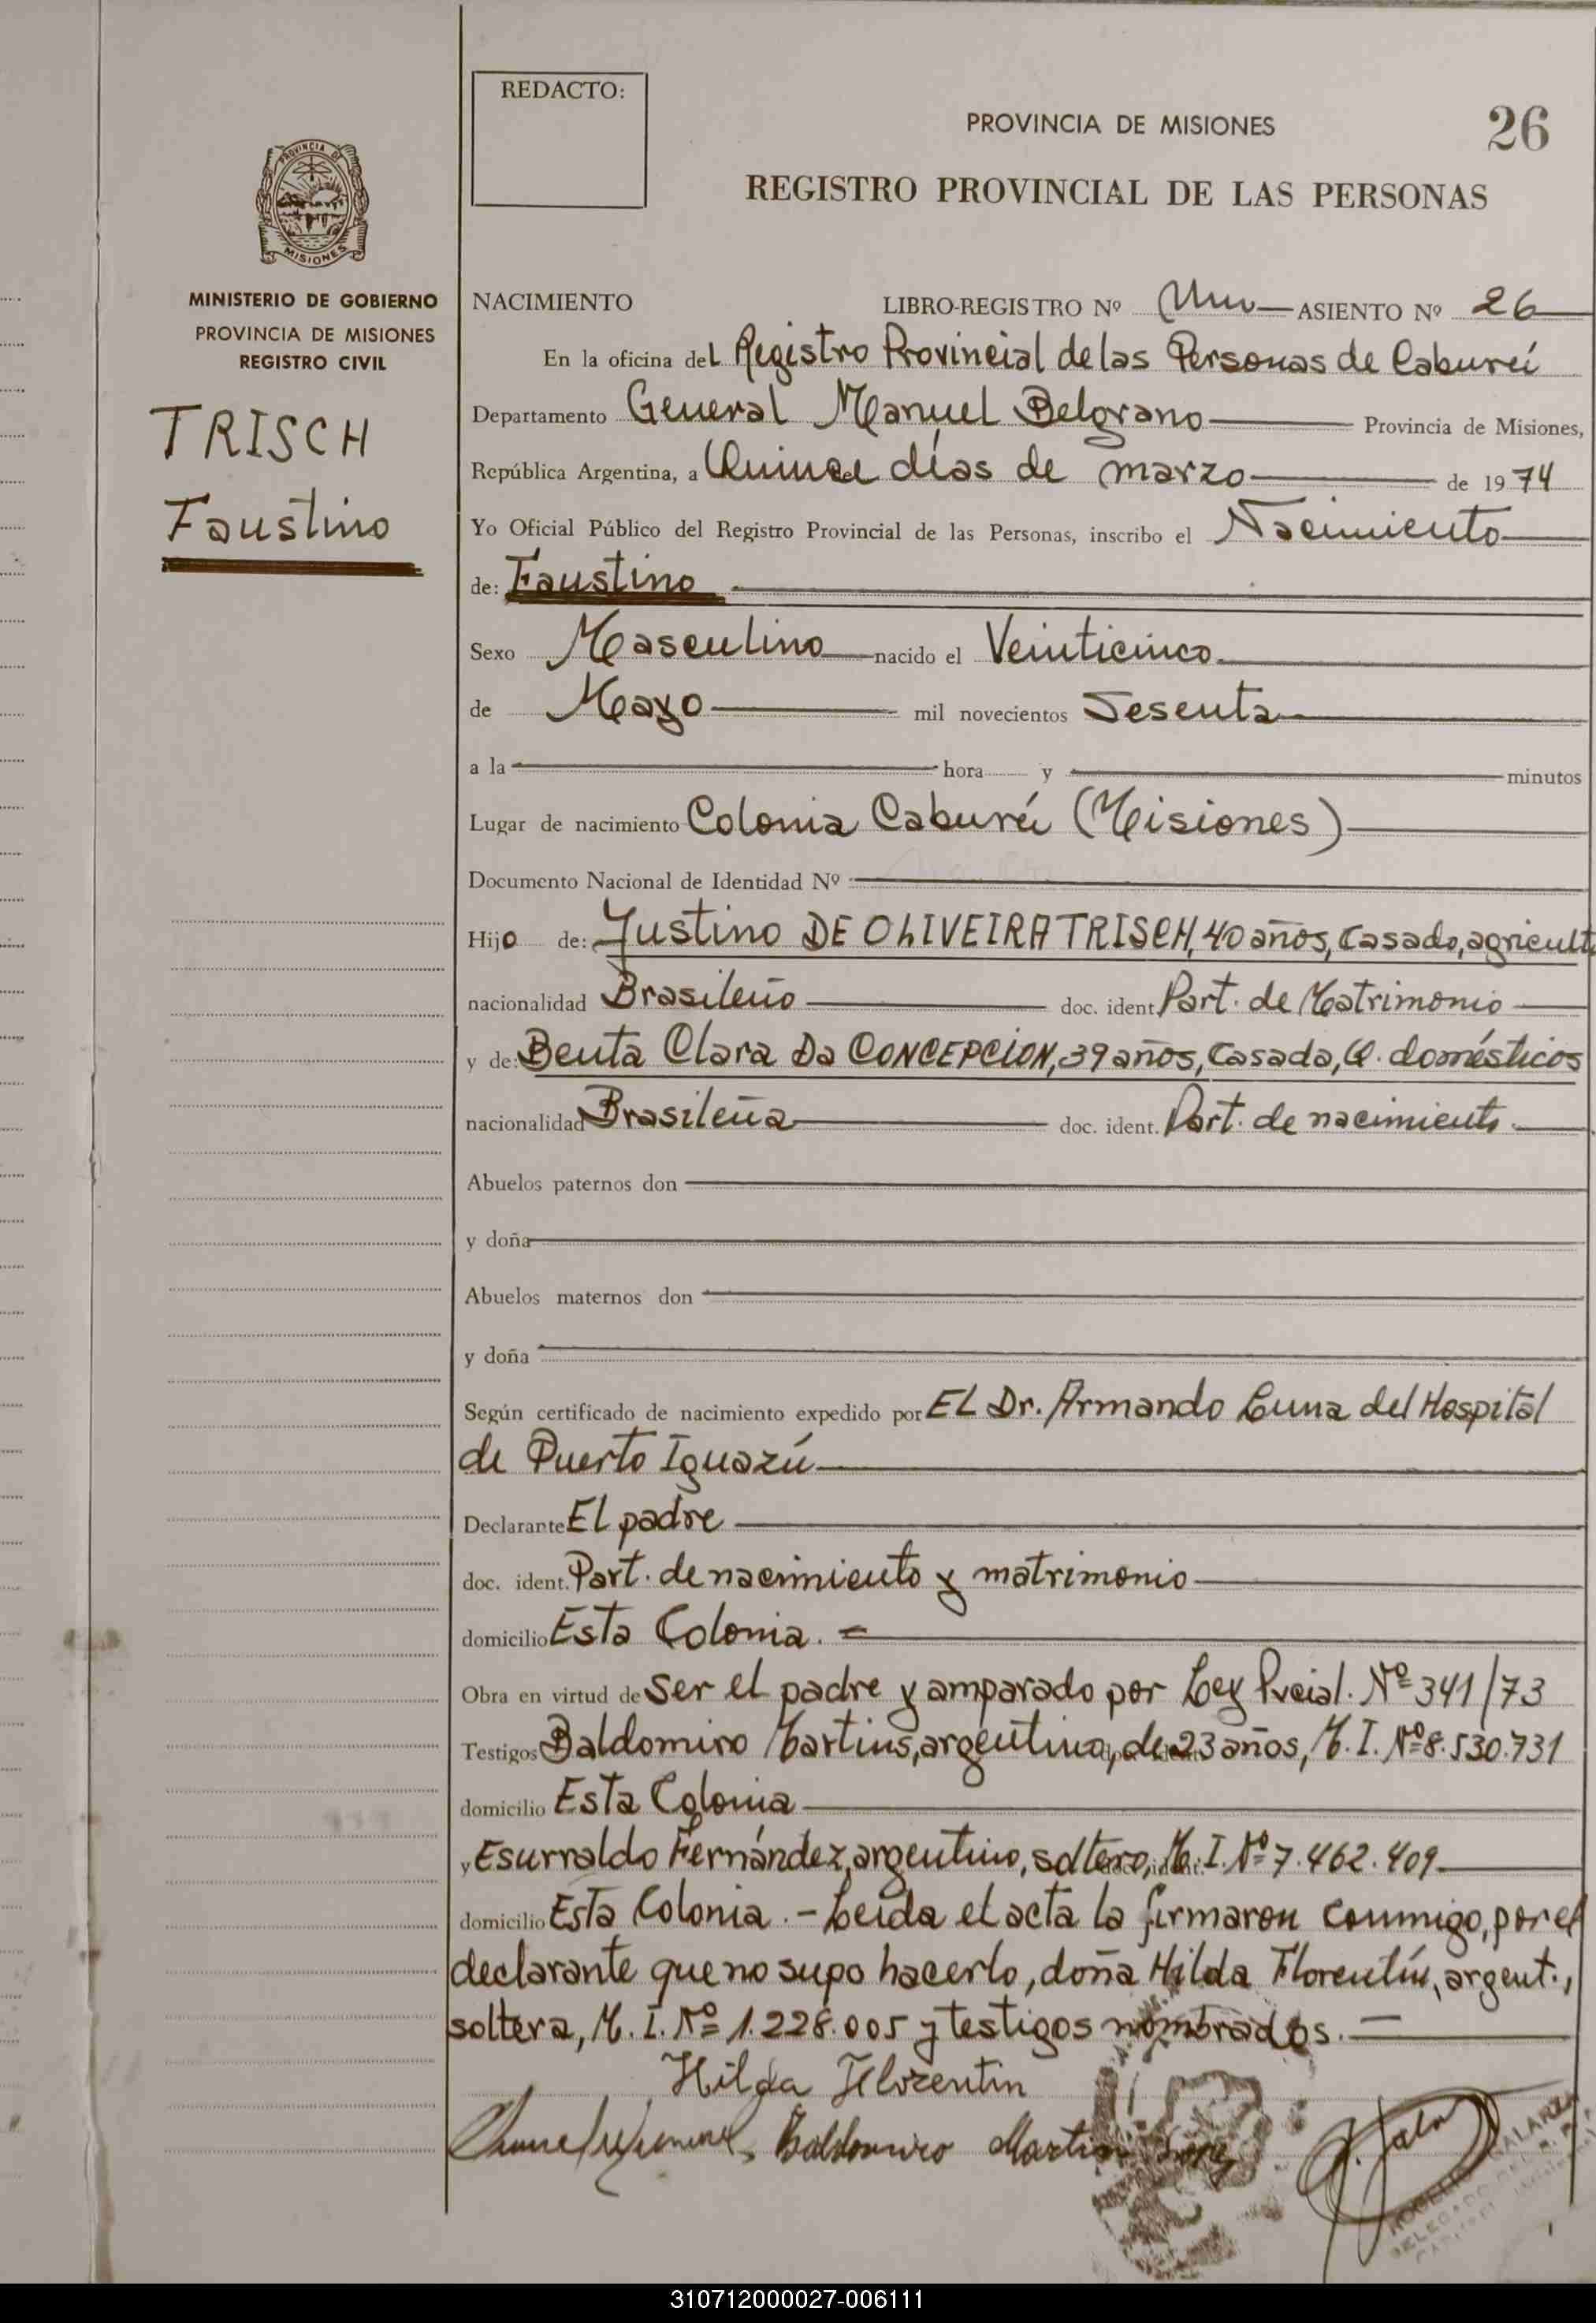 REDACTO:
PROVINCIA DE MISIONES
26
REGISTRO PROVINCIAL DE LAS PERSONAS
PROVINCIA DE
MISIONES
MINISTERIO DE GOBIERNO
PROVINCIA DE MISIONES
REGISTRO CIVIL
TRISCH
Faustino
NACIMIENTO LIBRO-REGISTRO Nº Uno ASIENTO Nº 26
En la oficina del Registro Provincial de las Personas de Caburei
Departamento General Manuel Belgrano Provincia de Misiones,
República Argentina, a Quince días de marzo de 1974
Yo Oficial Público del Registro Provincial de las Personas, inscribo el Nacimiento
de: Faustino
Sexo Masculino nacido el Veinticinco
de Mayo mil novecientos Sesenta
a la hora y minutos
Lugar de nacimiento Colonia Caburéi (Misiones)
Documento Nacional de Identidad Nº
Hijo de: Justino DE OLIVEIRA TRISCH, 40 años, Casado, agricult
nacionalidad Brasileño doc. ident Part. de Matrimonio
y de: Benta Clara Da CONCEPCION, 39 años, Casada, Q. domésticos
nacionalidad Brasileña doc. ident. Part. de nacimiento
Abuelos paternos don
y doña
Abuelos maternos don
y doña
Según certificado de nacimiento expedido por EL Dr. Armando Luna del Hospital
de Puerto Iguazú
Declarante EL padre
doc. ident. Part. de nacimiento y matrimonio
domicilio Esta Colonia. =
Obra en virtud de Ser el padre y amparado por Ley Pvcial. Nº 341/73
Testigos Baldomiro Martins, argentino, de 23 años, M. I. Nº 8.530.731
domicilio Esta Colonia
y Esurraldo Fernández, argentino, soltero, M. I. Nº 7.462.409
domicilio Esta Colonia. - Leida el acta la firmaron conmigo, por el
declarante que no supo hacerlo, doña Hilda Florentín, argent.,
soltera, M. I. Nº 1.228.005 y testigos nombrados.
Hilda Florentin
Baldomiro Martin
ROGELIO GALARZA
DELEGADO
310712000027-006111